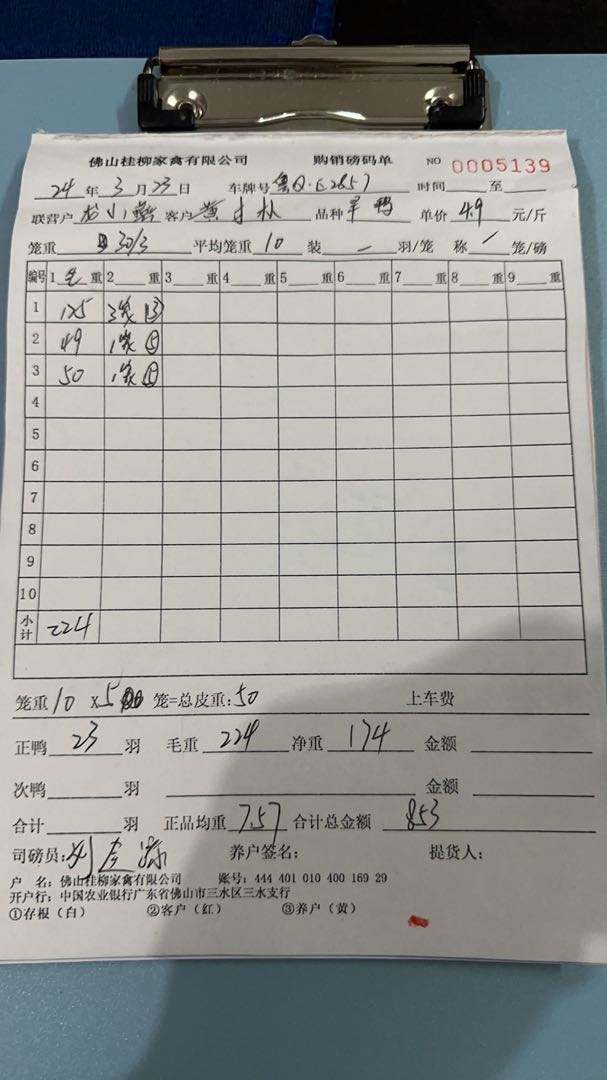 佛山桂柳家禽有限公司 购销磅码单 NO 0005139
24 年 3 月 23 日 车牌号 粤Q·E2857 时间 至
联营户 龙小 客户 黄才林 品种 鸭 单价 4.9 元/斤
笼重 30/3 平均笼重 10 装 一 羽/笼 称 一 笼/磅
编号 1 毛 重 2 重 3 重 4 重 5 重 6 重 7 重 8 重 9 重
1 125 3笼 ⑬
2 49 1笼 ⑤
3 50 1笼 ⑤
4
5
6
7
8
9
10
小计 224
笼重 10 X 5 笼=总皮重: 50 上车费
正鸭 23 羽 毛重 224 净重 174 金额
次鸭 羽 金额
合计 羽 正品均重 7.57 合计总金额 853
司磅员: 养户签名: 提货人:
户 名: 佛山桂柳家禽有限公司 账号: 444 401 010 400 169 29
开户行: 中国农业银行广东省佛山市三水区三水支行
①存根（白） ②客户（红） ③养户（黄）